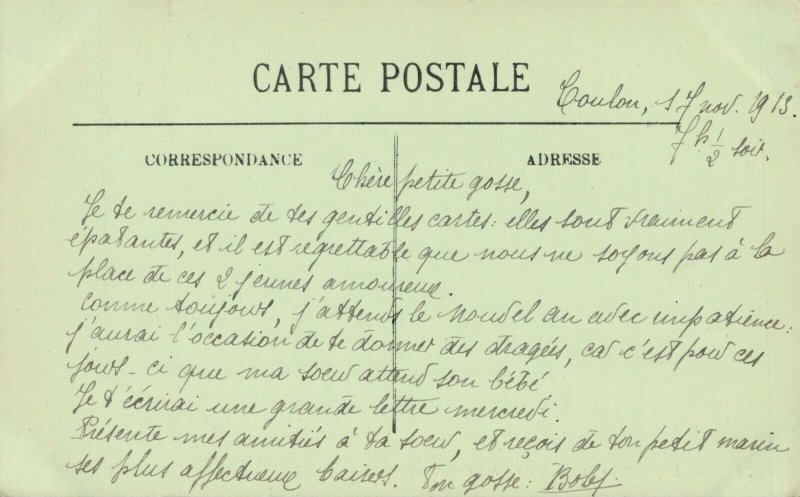 CARTE POSTALE
Toulon, 17 nov. 1913.
7h 1/2 soir.
CORRESPONDANCE
ADRESSE
Chère petite gosse,
Je te remercie de tes gentilles cartes: elles sont vraiment
épatantes, et il est regrettable que nous ne soyons pas à la
place de ces 2 jeunes amoureux.
Comme toujours, j'attends le Nouvel an avec impatience:
j'aurai l'occasion de te donner des dragées, car c'est pour ces
jours-ci que ma soeur attend son bébé
Je t'écrirai une grande lettre mercredi.
Présente mes amitiés à ta soeur, et reçois de ton petit marin
ses plus affectueux baisers. Ton gosse: